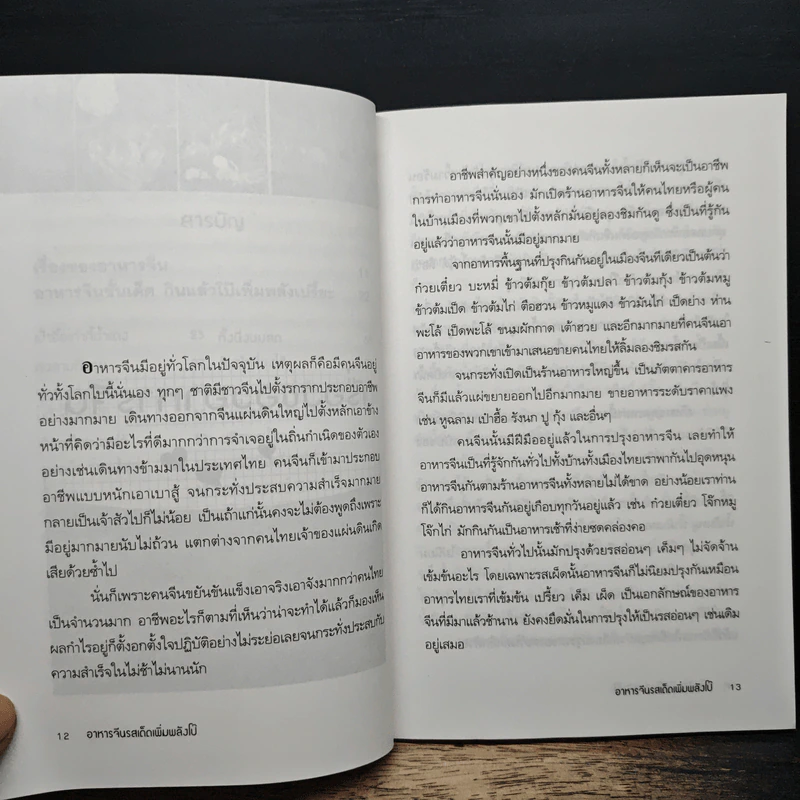 อาหารจีนมีอยู่ทั่วโลกในปัจจุบัน เหตุผลก็คือมีคนจีนอยู่
ทั่วทั้งโลกใบนี้นั่นเอง ทุกๆ ชาติมีชาวจีนไปตั้งรกรากประกอบอาชีพ
อย่างมากมาย เดินทางออกจากจีนแผ่นดินใหญ่ไปตั้งหลักเอาข้าง
หน้าที่คิดว่ามีอะไรที่ดีมากกว่าการจำเจอยู่ในถิ่นกำเนิดของตัวเอง
อย่างเช่นเดินทางข้ามมาในประเทศไทย คนจีนก็เข้ามาประกอบ
อาชีพแบบหนักเอาเบาสู้ จนกระทั่งประสบความสำเร็จมากมาย
กลายเป็นเจ้าสัวไปก็ไม่น้อย เป็นเถ้าแก่นั้นคงจะไม่ต้องพูดถึงเพราะ
มีอยู่มากมายนับไม่ถ้วน แตกต่างจากคนไทยเจ้าของแผ่นดินเกิด
เสียด้วยซ้ำไป
นั่นก็เพราะคนจีนขยันขันแข็งเอาจริงเอาจังมากกว่าคนไทย
เป็นจำนวนมาก อาชีพอะไรก็ตามที่เห็นว่าน่าจะทำได้แล้วก็มองเห็น
ผลกำไรอยู่ก็ตั้งอกตั้งใจปฏิบัติอย่างไม่ระย่อเลยจนกระทั่งประสบกับ
ความสำเร็จในไม่ช้าไม่นานนัก
12 อาหารจีนรสเด็ดเพิ่มพลังโป๊
อาชีพสำคัญอย่างหนึ่งของคนจีนทั้งหลายก็เห็นจะเป็นอาชีพ
การทำอาหารจีนนั่นเอง มักเปิดร้านอาหารจีนให้คนไทยหรือผู้คน
ในบ้านเมืองที่พวกเขาไปตั้งหลักมั่นอยู่ลองชิมกันดู ซึ่งเป็นที่รู้กัน
อยู่แล้วว่าอาหารจีนนั้นมีอยู่มากมาย
จากอาหารพื้นฐานที่ปรุงกินกันอยู่ในเมืองจีนทีเดียวเป็นต้นว่า
ก๋วยเตี๋ยว บะหมี่ ข้าวต้มกุ๊ย ข้าวต้มปลา ข้าวต้มกุ้ง ข้าวต้มหมู
ข้าวต้มเป็ด ข้าวต้มไก่ ตือฮวน ข้าวหมูแดง ข้าวมันไก่ เป็ดย่าง ห่าน
พะโล้ เป็ดพะโล้ ขนมผักกาด เต้าฮวย และอีกมากมายที่คนจีนเอา
อาหารของพวกเขาเข้ามาเสนอขายคนไทยให้ลิ้มลองชิมรสกัน
จนกระทั่งเปิดเป็นร้านอาหารใหญ่ขึ้น เป็นภัตตาคารอาหาร
จีนก็มีแล้วแผ่ขยายออกไปอีกมากมาย ขายอาหารระดับราคาแพง
เช่น หูฉลาม เป๋าฮื้อ รังนก ปู กุ้ง และอื่นๆ
คนจีนนั้นมีฝีมืออยู่แล้วในการปรุงอาหารจีน เลยทำให้
อาหารจีนเป็นที่รู้จักกันทั่วไปทั้งบ้านทั้งเมืองไทยเราพากันไปอุดหนุน
อาหารจีนกันตามร้านอาหารจีนทั้งหลายไม่ได้ขาด อย่างน้อยเราท่าน
ก็ได้กินอาหารจีนกันอยู่เกือบทุกวันอยู่แล้ว เช่น ก๋วยเตี๋ยว โจ๊กหมู
โจ๊กไก่ มักกินกันเป็นอาหารเช้าที่ง่ายซดคล่องคอ
อาหารจีนทั่วไปนั้นมักปรุงด้วยรสอ่อนๆ เค็มๆ ไม่จัดจ้าน
เข้มข้นอะไร โดยเฉพาะรสเผ็ดนั้นอาหารจีนก็ไม่นิยมปรุงกันเหมือน
อาหารไทยเราที่เข้มข้น เปรี้ยว เค็ม เผ็ด เป็นเอกลักษณ์ของอาหาร
จีนที่มีมาแล้วช้านาน ยังคงยืดมั่นในการปรุงให้เป็นรสอ่อนๆ เช่นเดิม
อยู่เสมอ
อาหารจีนรสเด็ดเพิ่มพลังโป๊ 13